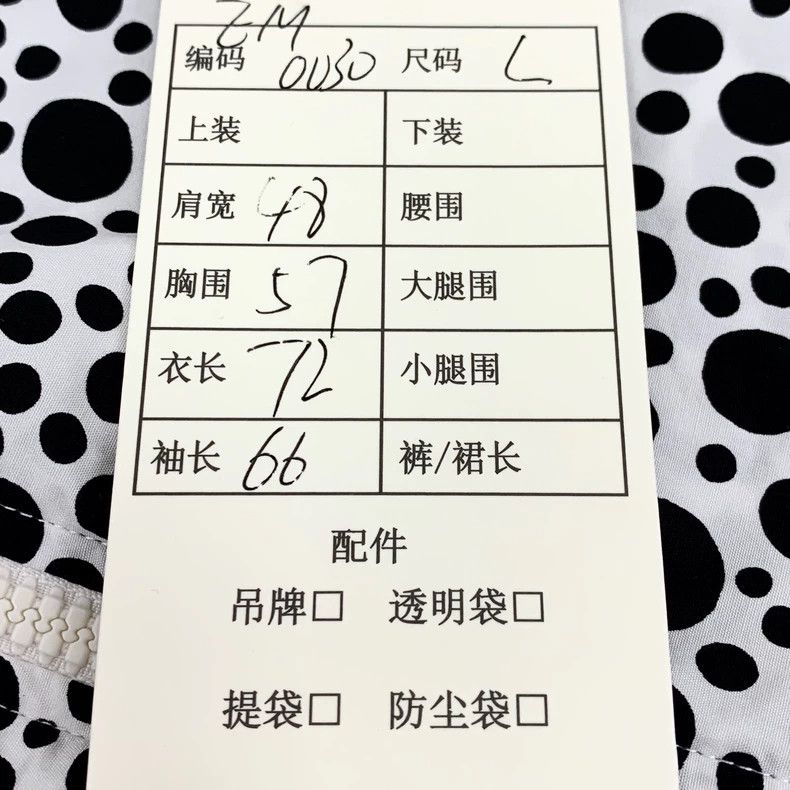 ZM
编码 0030 尺码 L
上装 下装
肩宽 48 腰围
胸围 57 大腿围
衣长 72 小腿围
袖长 66 裤/裙长
配件
吊牌□ 透明袋□
提袋□ 防尘袋□